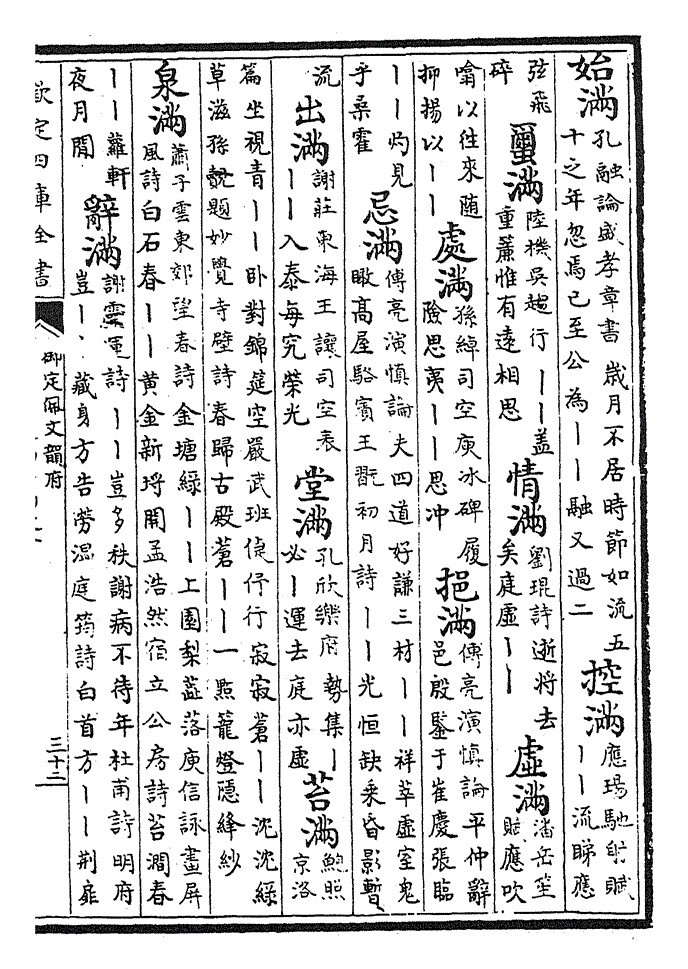 始滿孔融論盛孝章書 歲月不居時節如流五
十之年忽焉已至公為丨丨融又過二
控滿應瑒馳射賦
丨丨流睇應
弦飛
碎
璽滿陸機吳趨行 丨丨盖
重簾惟有遠相思
情滿劉琨詩逝將去
矣庭虛丨丨
虛滿潘岳笙
賦應吹
噏以往來随
抑揚以丨丨
處滿孫綽司空庾冰碑履
險思夷丨丨思冲
挹滿傅亮演慎論平仲辭
邑殷鑒于崔慶張臨
丨丨灼見
乎桑霍
忌滿傅亮演慎論夫四道好謙三材丨丨祥萃虛室鬼
瞰髙屋駱賓王翫初月詩丨丨光恒缺乗昏影暫
流
出滿謝莊東海王讓司空表
丨丨入泰每究榮光
堂滿孔欣樂府 勢集丨
必丨運去庭亦虛
苔滿鮑照
京洛
篇坐視青丨丨卧對錦筵空嚴武班倢伃行寂寂蒼丨丨沈沈緑
草滋孫覿題妙覺寺壁詩春歸古殿蒼丨丨一㸃籠燈隱絳紗
泉滿蕭子雲東郊望春詩金塘緑丨丨上園梨蘂落庾信詠畫屏
風詩白石春丨丨黄金新埒開孟浩然宿立公房詩苔澗春
丨丨蘿軒
夜月閒
辭滿謝靈運詩丨丨豈多秩謝病不待年杜甫詩明府
豈丨丨藏身方告勞温庭筠詩白首方丨丨荆扉
欽定四庫全書
御定佩文韻府
三十二